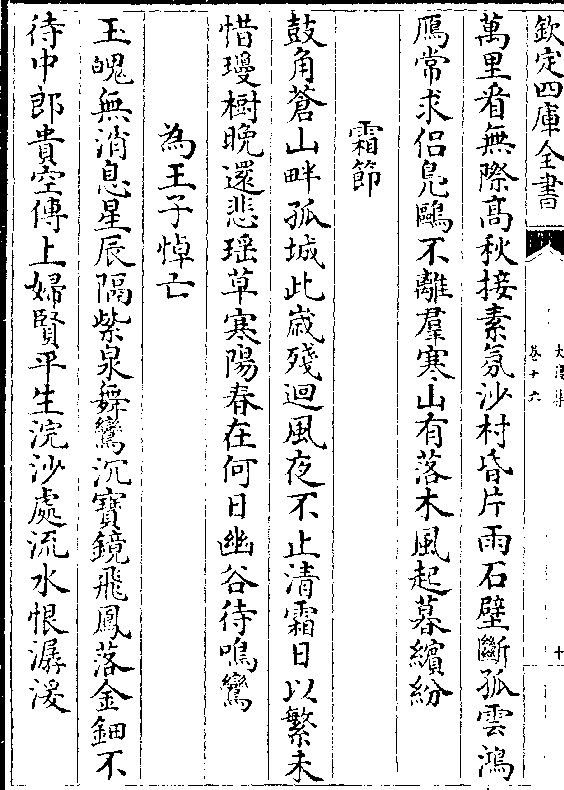 欽定四庫全書
卷十六
十
萬里看無際高秋接素氛沙村昏片雨石壁斷孤雲鴻
鴈常求侣鳬鷗不離羣寒山有落木風起暮繽紛
霜節
鼓角蒼山畔孤城此嵗殘迴風夜不止清霜日以繁未
惜璦樹晩還悲瑶草寒陽春在何日幽谷待鳴鸞
為王子悼亡
玉魄無消息星辰隔紫泉舞鸞沉寳鏡飛鳳落金鈿不
待中郎貴空傳上婦賢平生浣沙處流水恨潺湲